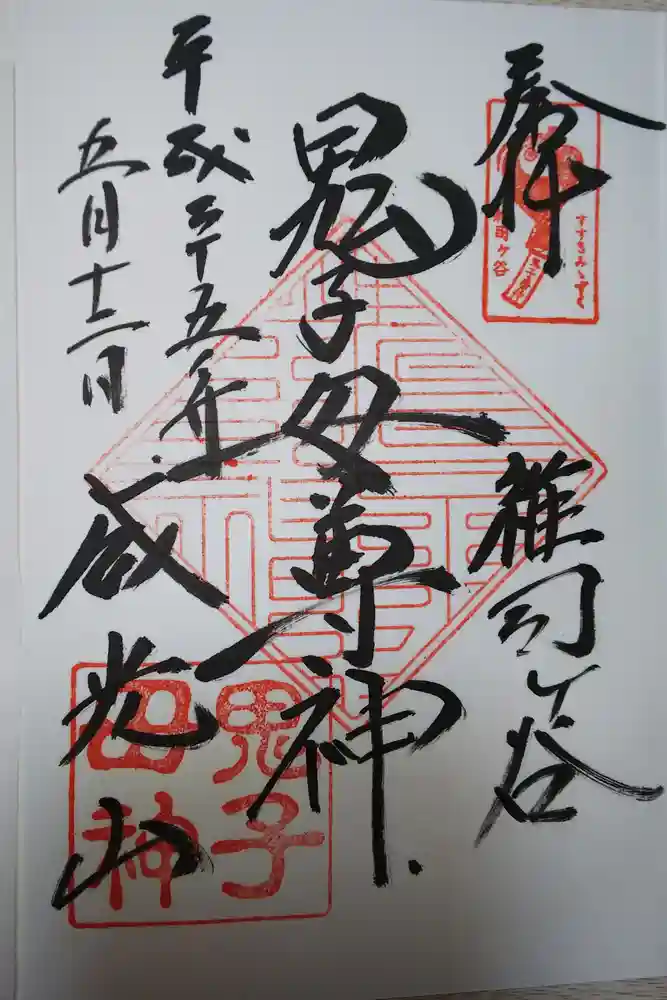 奉拝
雑司ヶ谷
鬼子母尊神
平成二十五年
五月十二日
威光山
すすきみみずく
司ヶ谷
鬼子
母神